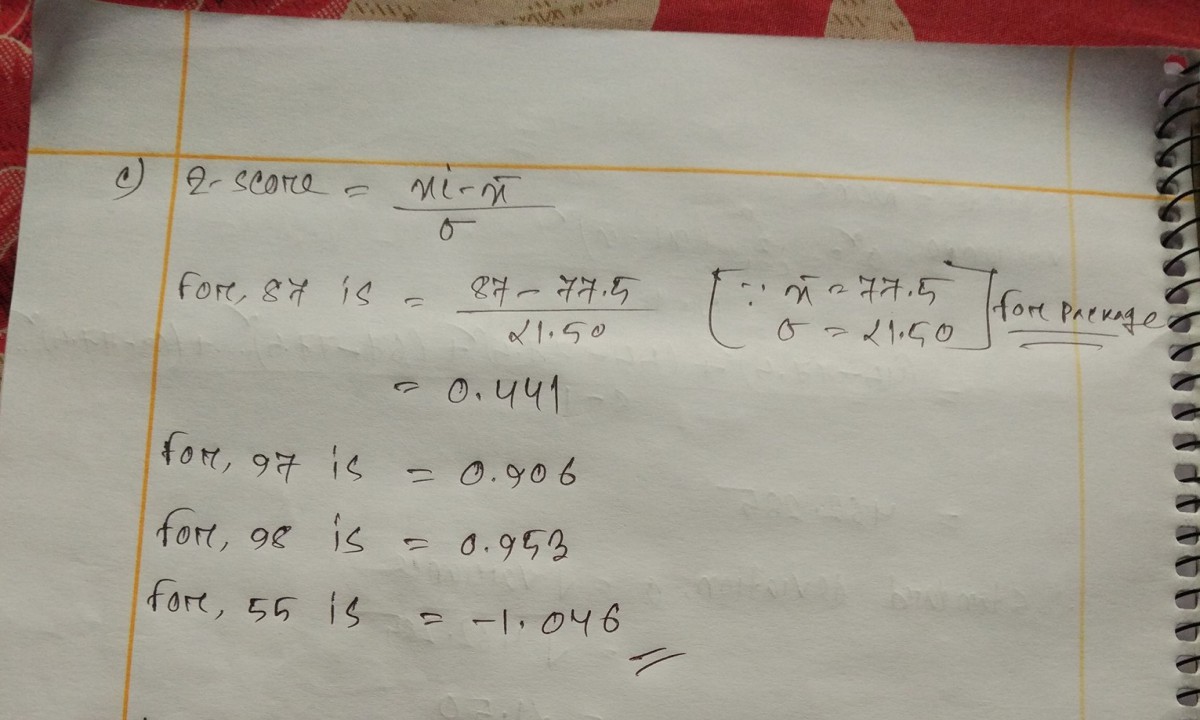 c) Z-score = xi-x̄ / σ
for, 87 is = 87-77.5 / 21.50 [∵ x̄ = 77.5 σ = 21.50] for package
= 0.441
for, 97 is = 0.906
for, 98 is = 0.953
for, 55 is = -1.046